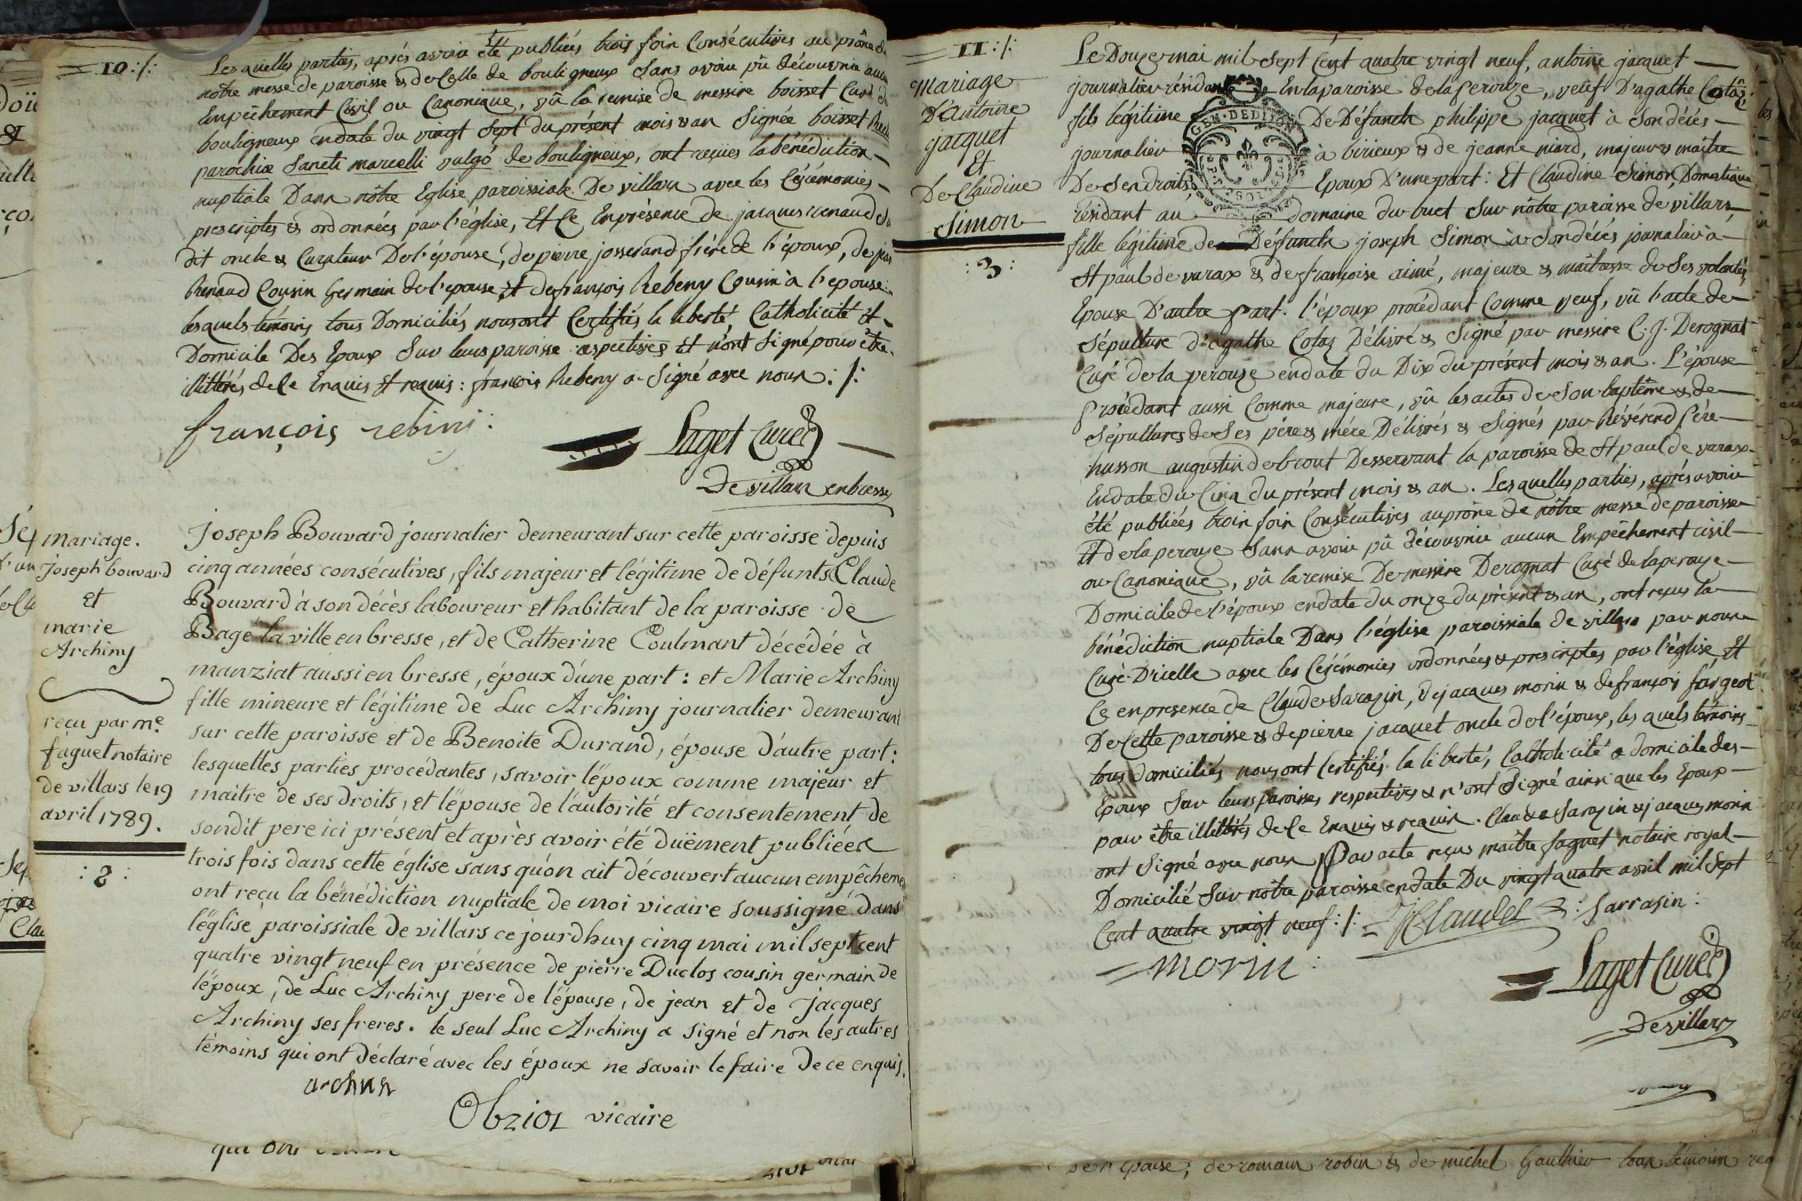 10 :/:
Les quelles parties, après avoir été publiés trois fois Consécutives au prône de
notre messe de paroisse & de Celle de bouligneux sans avoir pû découvrir aucun
Empêchement Civil ou Canonique, vû la remise de messire boisset Curé de
bouligneux endate du vingt sept du présent mois & an Signée boisset
parochiæ Sancti marcelli vulgó de bouligneux, ont reçues la bénédiction
nuptiale Dans nôtre Eglise paroissiale De villars avec les Cérémonies
prescriptes & ordonnées par l'église, Et Ce Enprésence de jacques renaud
dit oncle & Curateur De l'épouse, de pierre josserand frère de l'époux, de
Renaud Cousin Germain de l'epouse, Et de françois Rebeny Cousin à l'epouse
les quels témoins tous Domiciliés nous ont Certifiés la liberté Catholicité &
Domicile Des Epoux Sur leurs paroisse respectives Et n'ont Signé pour être
illittérés de Ce Enquis Et requis : françois Rebeny a Signé avec nous :/:
françois rebini :
Laget Curé
De villars enbresse
mariage.
Joseph bouvard
et
marie
Archiny
reçu par me.
faguet notaire
de villars le 19
avril 1789.
: 2 :
Joseph Bouvard journalier demeurant sur cette paroisse depuis
cinq années consécutives, fils majeur et légitime de défunts Claude
Bouvard à son décès laboureur et habitant de la paroisse de
Bage la ville en bresse, et de Catherine Coulmant décédée à
manziat aussi en bresse, époux d'une part : et Marie Archiny
fille mineure et légitime de Luc Archiny journalier demeurant
sur cette paroisse et de Benoite Durand, épouse d'autre part :
lesquelles parties procédantes, savoir l'époux comme majeur et
maitre de ses droits, et l'épouse de l'autorité et consentement de
sondit pere ici présent et après avoir été duëment publiées
trois fois dans cette église sans qu'on ait découvert aucun empêcheme
ont reçu la bénédiction nuptiale de moi vicaire soussigné dans
l'église paroissiale de villars ce jourdhuy cinq mai mil sept cent
quatre vingt neuf en présence de pierre Duclos cousin germain de
l'époux, de Luc Archiny pere de l'épouse, de jean et de jacques
Archiny ses freres. le seul Luc Archiny a signé et non les autres
témoins qui ont déclaré avec les époux ne savoir le faire de ce enquis.
archini
Obriot vicaire
qui ont
11 :/:
Mariage
D'antoine
jacquet
Et
De Claudine
Simon
: 3 :
Le Douze mai mil Sept Cent quatre vingt neuf, antoine jacquet
journalier résidant En la paroisse de la perouze, veuf D'agathe Cotaz
fils légitime De Défunck philippe jacquet à son décés
journalier à birieux & de jeanne niard, majeur & maître
De Ses droits Epoux D'une part : Et Claudine Simon, Domestique
résidant au domaine du buet Sur nôtre paroisse de villars
fille légitime de Défunck joseph Simon à Son décés journalier à
St paul de varax & de françoise aimé, majeure & maîtresse de Ses volontés
Epouse D'autre part. l'époux procédant Comme veuf, vû l'acte de
Sépulture d'agathe Cotaz Délivré & Signé par messire C. J. Derognat
Curé de la perouze endate du Dix du présent mois & an. L'épouse
procédant aussi Comme majeure, vû les actes de Son baptême & de
Sépultures de Ses pére & mére Délivrés & Signés par Révérend père
husson augustin de brout Desservant la paroisse de St paul de varax
Endate du Cinq du présent mois & an. Les quelles parties, après avoir
été publiées trois fois Consécutives au prône de nôtre messe de paroisse
Et de la perouze Sans avoir pû découvrir aucun Empêchement civil
ou Canonique, vû la remise De messire Derognat Curé de la perouze
Domicile de l'époux endate du onze du présent & an, ont reçus la
bénédiction nuptiale Dans l'église paroissiale de villars par nous
Curé D'icelle avec les Cérémonies ordonnées & prescriptes par l'église Et
Ce en presence de Claude Sarazin, De jacques morin & de françois fargeot
De Cette paroisse & de pierre jacquet oncle de l'époux, les quels témoins
tous domiciliés nous ont Certifiés la liberté, Catholicité & domicile des
Epoux Sur leurs paroisses respectives & n'ont Signé ainsi que les Epoux
pour être illittérés de Ce Enquis & requis. Claude Sarazin & jacques morin
ont Signé avec nous Par acte reçus maître faguet notaire royal
Domicilié Sur nôtre paroisse endate Du vingt quatre avril mil Sept
Cent quatre vingt neuf :/:
Claude Sarrasin :
morin :
Laget Curé
De villars
GEN. DE DIJON
de romain robin & de michel Gauthier tous témoins